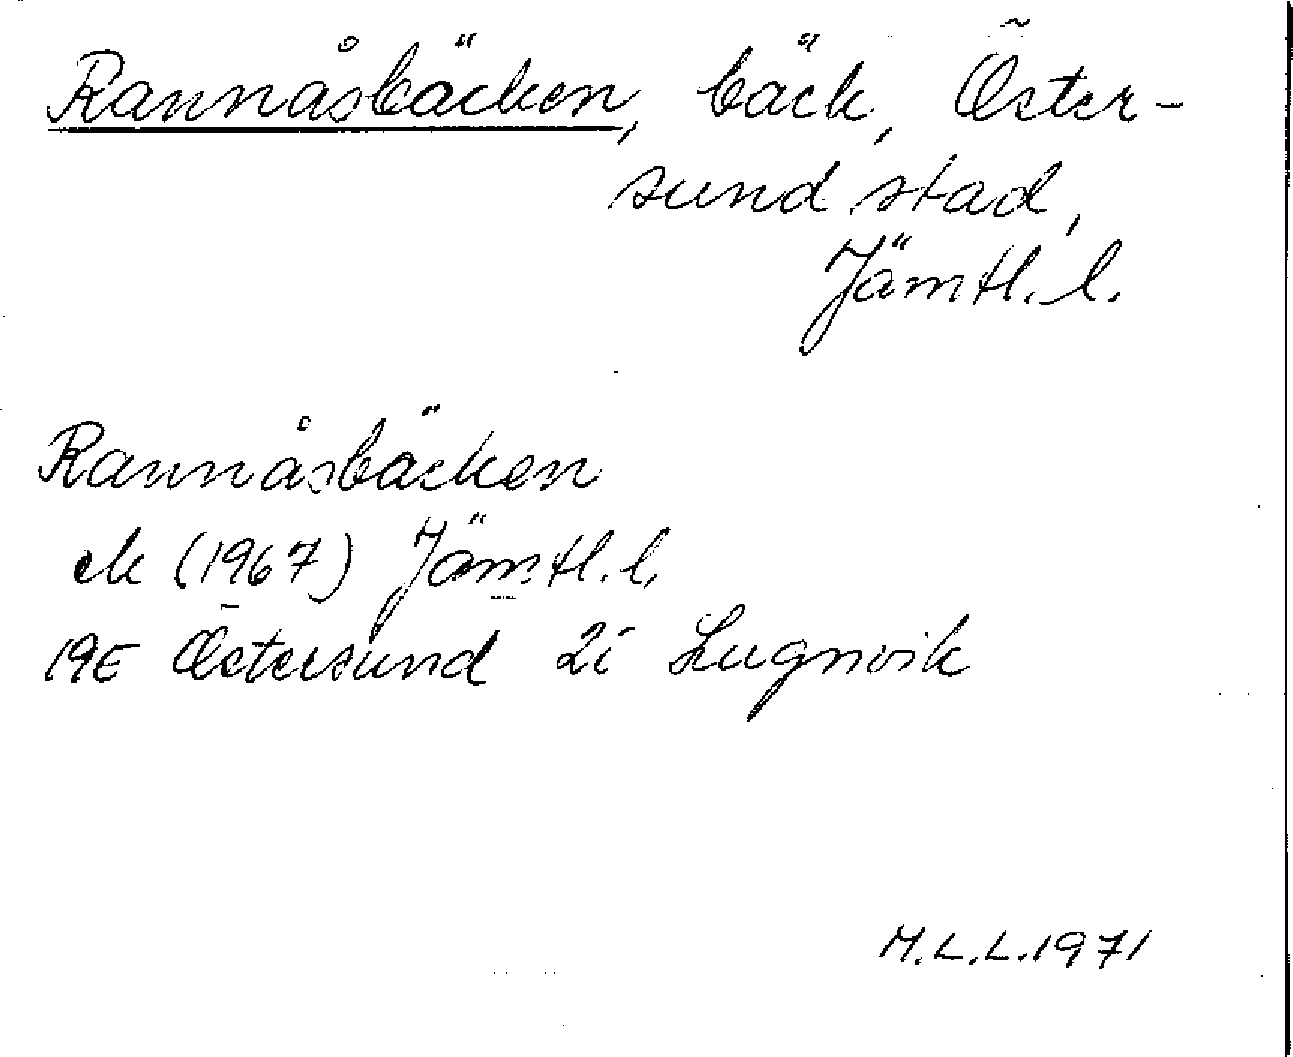 Rannåsbäcken, bäck, Öster-
sund stad,
Jämtl. l.
Rannåsbäcken
ek (1967) Jämtl. l.
19E Östersund 2i Lugnvik
M.L.L. 1971